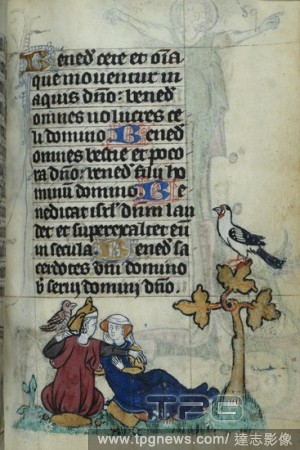 59
Bened cete et oīa
que moventur in
aquis dn̄o: bened
omnes uolucres ce
li domino Bened
omnes bestie et peco
ra dn̄o: bened filii ho
minum domino Be
nedicat isrl' dnum lau
det et superexaltet eū
in secula Bened sa
cerdotes dn̄i domino
b serui domini dn̄o.
TPG
www.tpgnews.com/ 達志影像